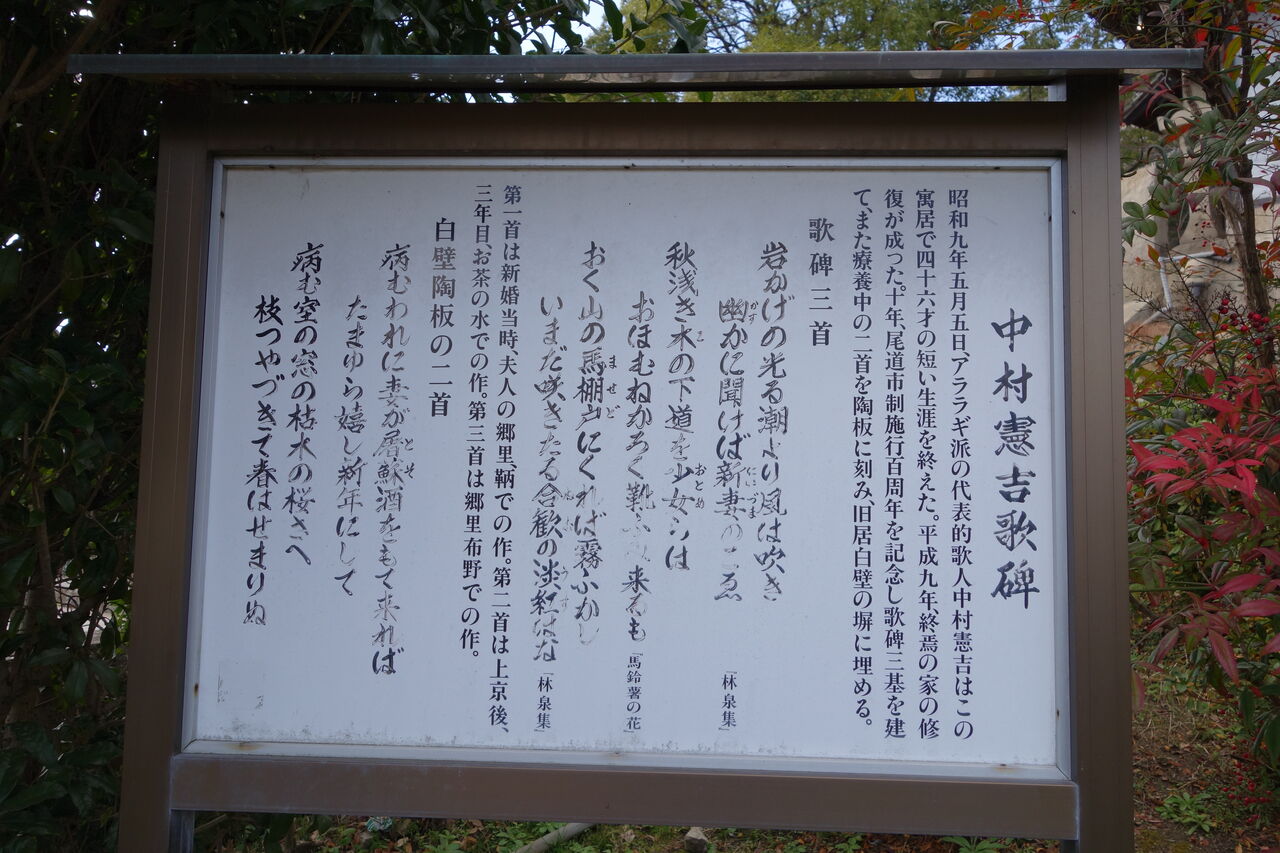 中村憲吉歌碑
昭和九年五月五日、アララギ派の代表的歌人中村憲吉はこの
寓居で四十六才の短い生涯を終えた。平成九年、終焉の家の修
復が成った。十年、尾道市制施行百周年を記念し歌碑三基を建
て、また療養中の二首を陶板に刻み、旧居白壁の塀に埋める。
歌碑三首
岩かげの光る潮より風は吹き
幽かに聞けば新妻のこゑ 「林泉集」
秋浅き木の下道を少女らは
おほむねかろく靴ふみ来るも 「馬鈴薯の花」
おく山の馬棚戸にくれば霧ふかし
いまだ咲きたる合歓の淡紅はな 「林泉集」
第一首は新婚当時、夫人の郷里、鞆での作。第二首は上京後、
三年目、お茶の水での作。第三首は郷里布野での作。
白壁陶板の二首
病むわれに妻が屠蘇酒をもて来れば
たまゆら嬉し新年にして
病む室の窓の枯木の桜さへ
枝つやづきて春はせまりぬ